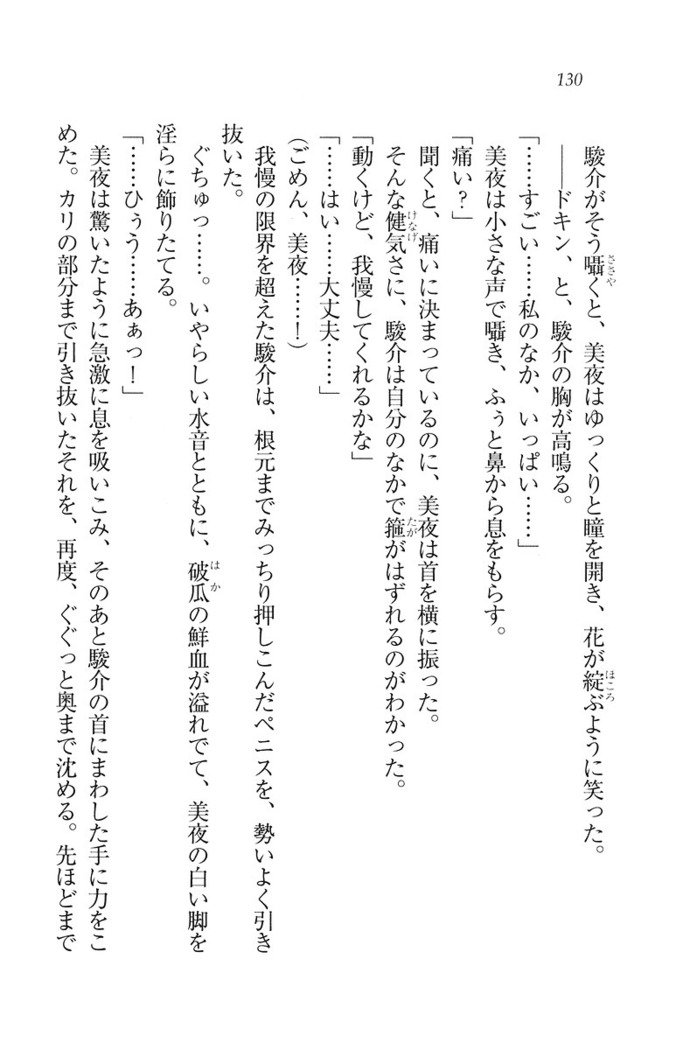 130
駿介がそう囁くと、美夜はゆっくりと瞳を開き、花が綻ぶように笑った。
――ドキン、と、駿介の胸が高鳴る。
「……すごい……私のなか、いっぱい……」
美夜は小さな声で囁き、ふぅと鼻から息をもらす。
「痛い？」
聞くと、痛いに決まっているのに、美夜は首を横に振った。
そんな健気さに、駿介は自分のなかで箍がはずれるのがわかった。
「動くけど、我慢してくれるかな」
「……はい……大丈夫……」
(ごめん、美夜……！)
我慢の限界を超えた駿介は、根元までみっちり押しこんだペニスを、勢いよく引き
抜いた。
ぐちゅっ……。いやらしい水音とともに、破瓜の鮮血が溢れでて、美夜の白い脚を
淫らに飾りたてる。
「……ひぅう……あぁっ！」
美夜は驚いたように急激に息を吸いこみ、そのあと駿介の首にまわした手に力をこ
めた。カリの部分まで引き抜いたそれを、再度、ぐぐっと奥まで沈める。先ほどまで